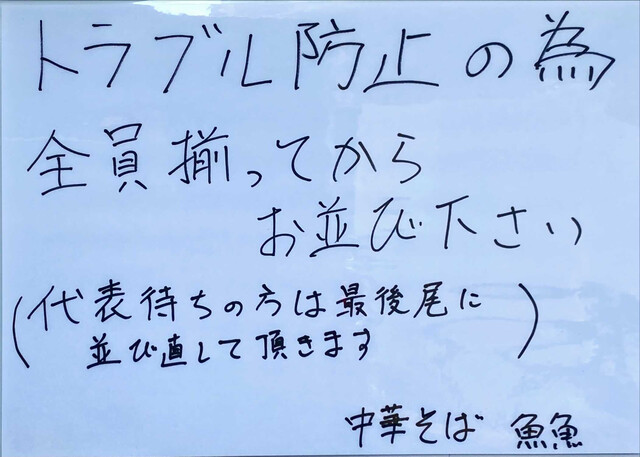 トラブル防止の為
全員揃ってから
お並び下さい
(代表待ちの方は最後尾に
並び直して頂きます)
中華そば 魚魚